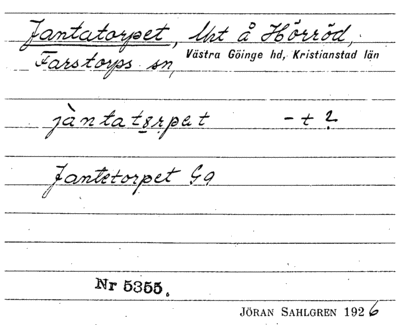 Jantatorpet, Mt å Hörröd,
Farstorps sn, Västra Göinge hd, Kristianstad län
jàntatɛrpet - t 2
Jantetorpet Ga
Nr 5355.
JÖRAN SAHLGREN 1926